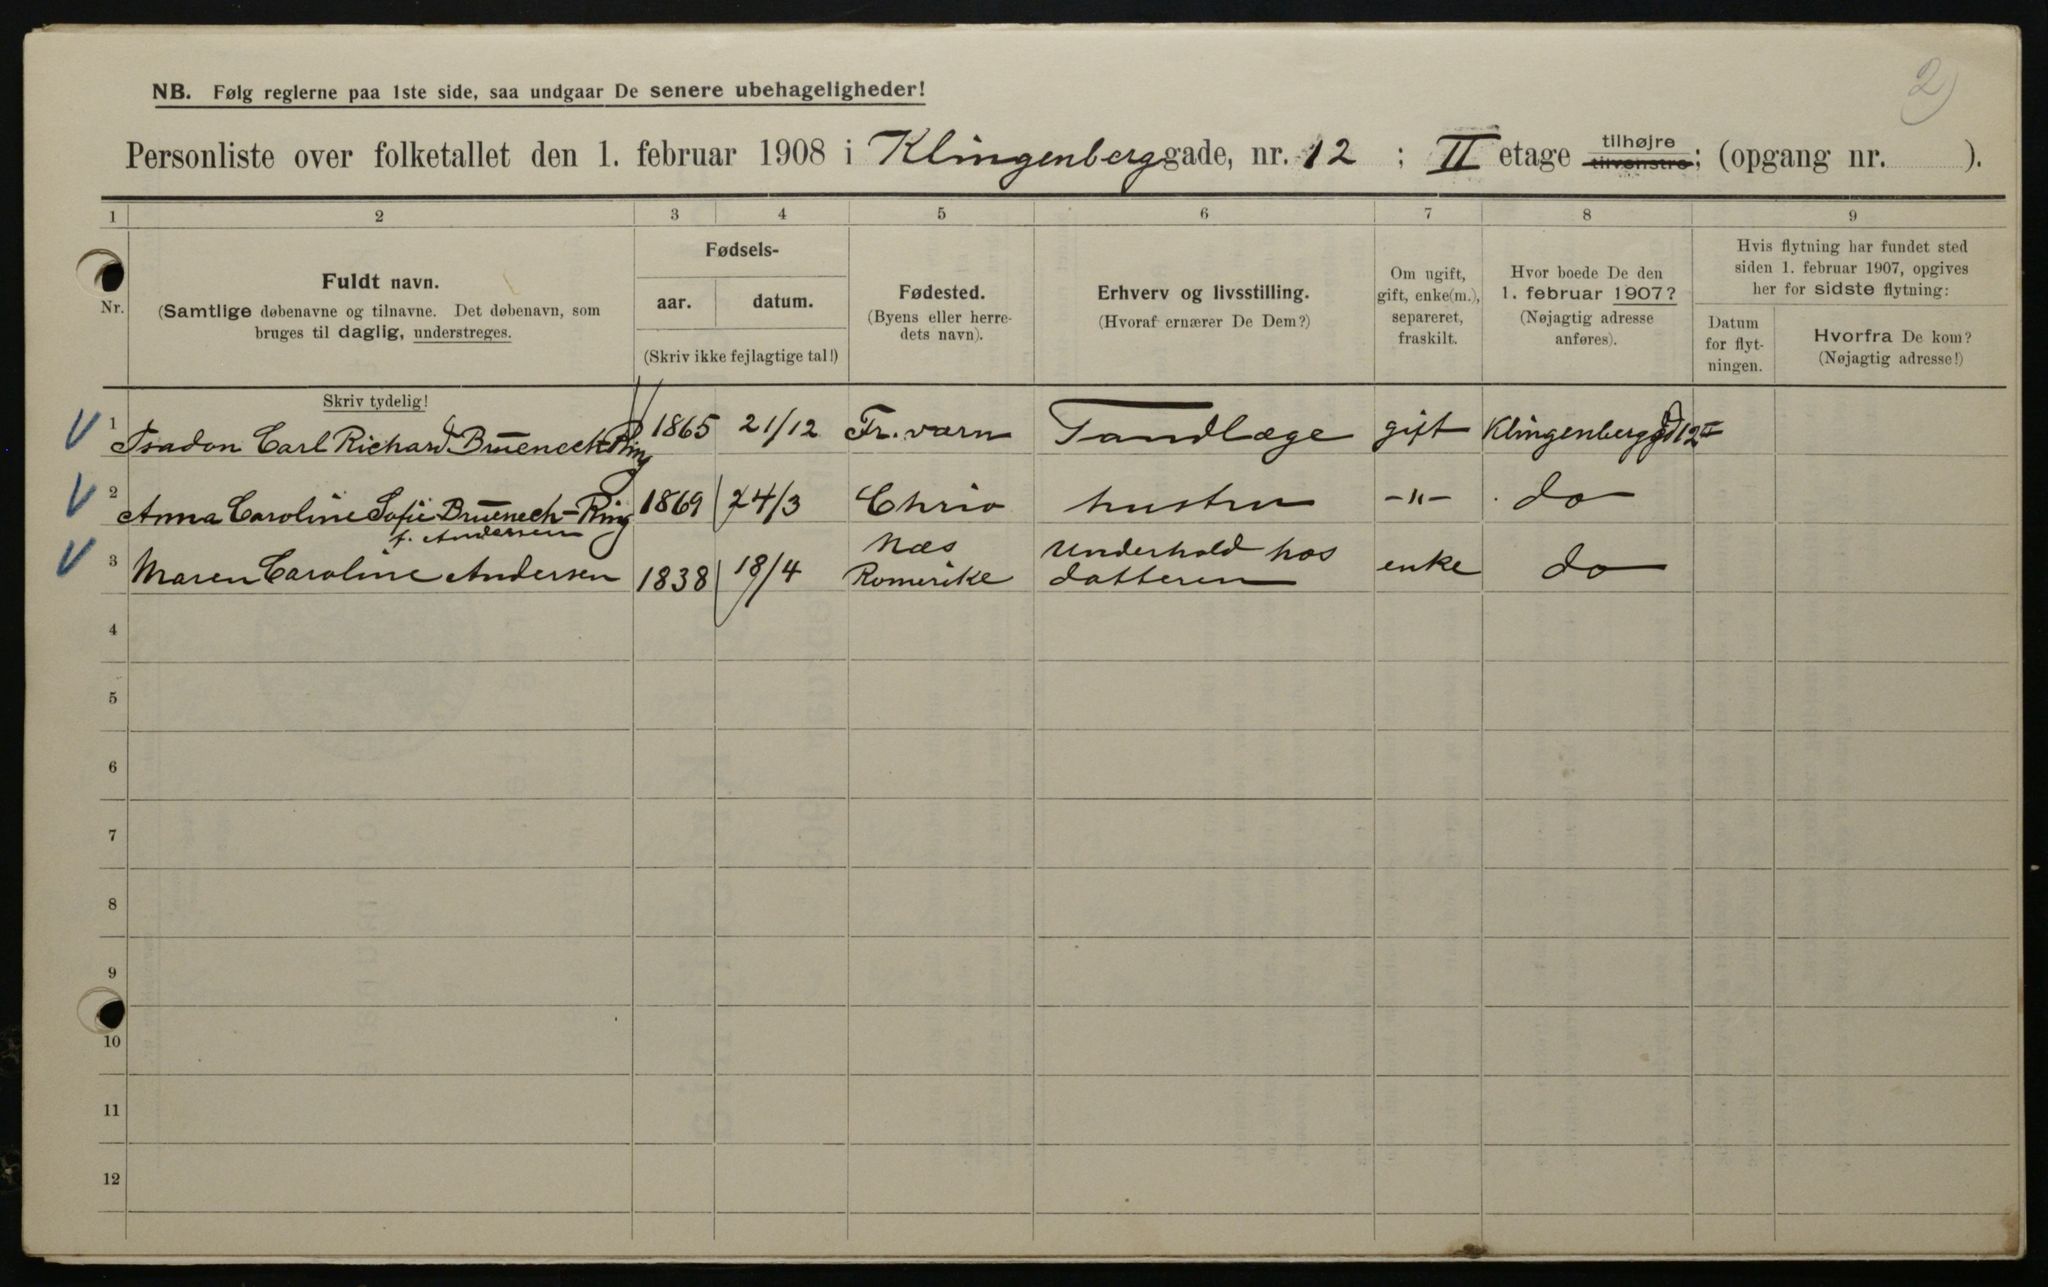 2)
NB. Følg reglerne paa 1ste side, saa undgaar De senere ubehageligheder!
Personliste over folketallet den 1. februar 1908 i Klingenberggade, nr. 12 ; II etage tilhøjre tilvenstre; (opgang nr. ).
1 2 3 4 5 6 7 8 9
Nr.
Fuldt navn.
(Samtlige døbenavne og tilnavne. Det døbenavn, som
bruges til daglig, understreges.
Skriv tydelig!
Fødsels-
aar. datum.
(Skriv ikke fejlagtige tal!)
Fødested.
(Byens eller herre-
dets navn).
Erhverv og livsstilling.
(Hvoraf ernærer De Dem?)
Om ugift,
gift, enke(m.),
separeret,
fraskilt.
Hvor boede De den
1. februar 1907?
(Nøjagtig adresse
anføres).
Hvis flytning har fundet sted
siden 1. februar 1907, opgives
her for sidste flytning:
Datum
for flyt-
ningen.
Hvorfra De kom?
(Nøjagtig adresse!)
1 Carl Richard Bruenech-Ring 1865 21/12 Fr.værn Tandlæge gift Klingenberggd 12 II
2 Anna Caroline Sofie Bruenech-Ring 1869 24/3 Chria hustru -"- do
f. Andersen
3 Maren Caroline Andersen 1838 18/4 Næs Romerike Underhold hos datteren enke do
4
5
6
7
8
9
10
11
12